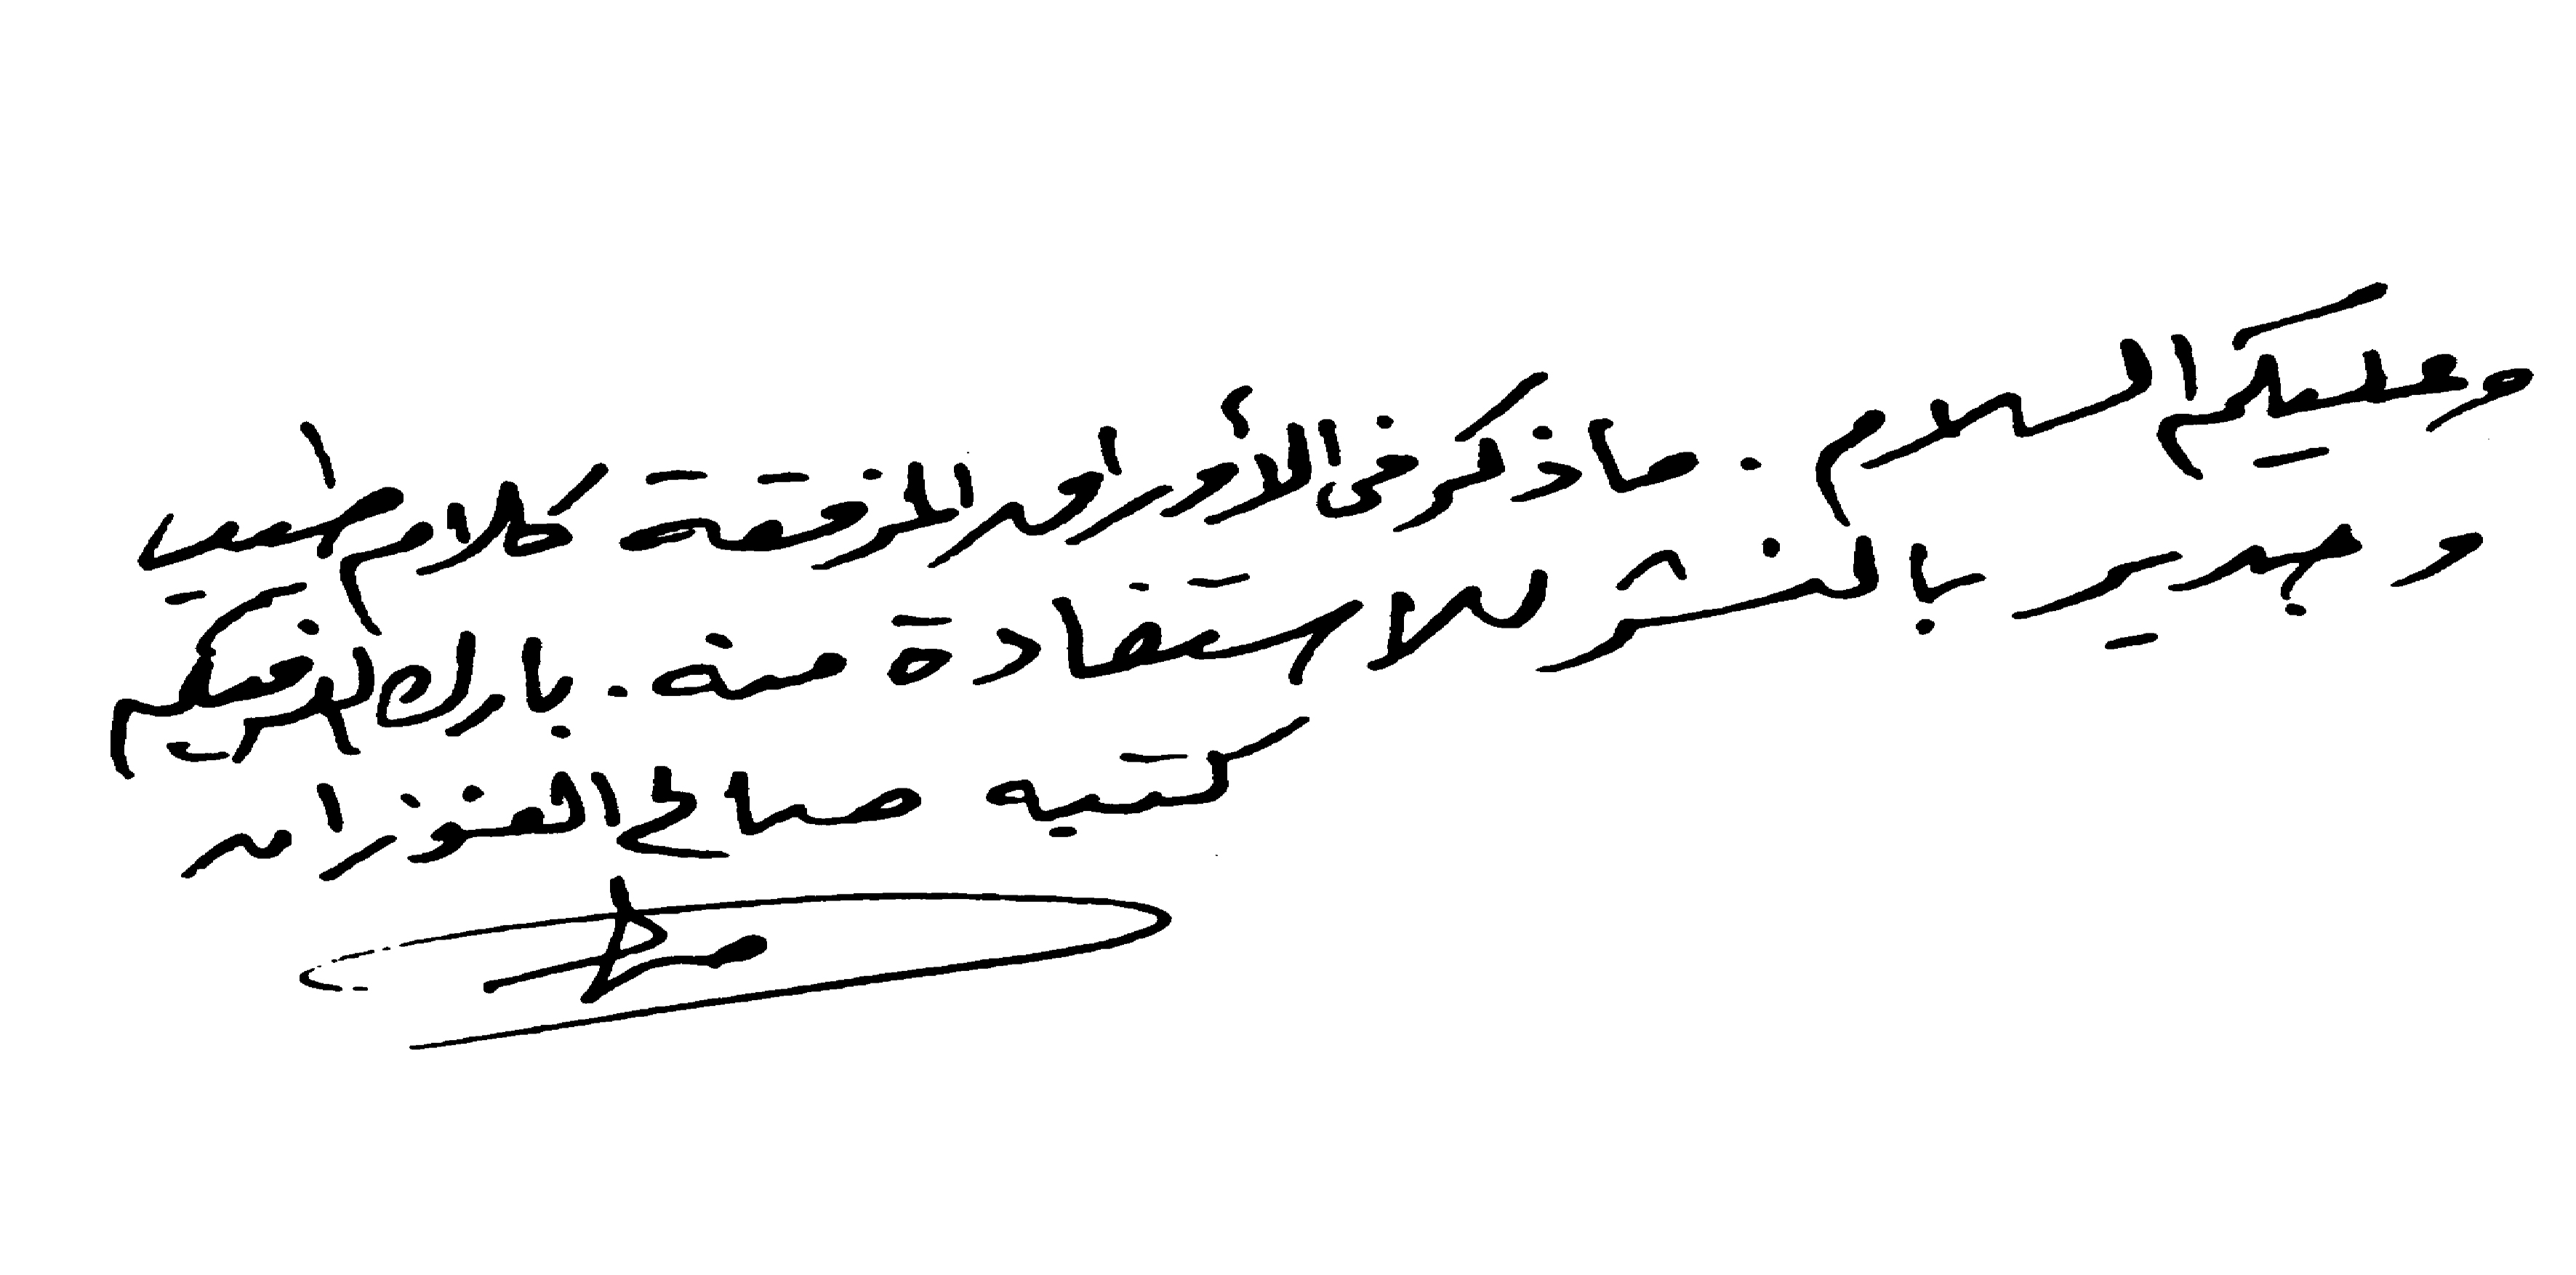 وعليكم السلام . ما ذكر في الأوراق المرفقة كلام طيب
وجدير بالنشر للاستفادة منه . بارك الله فيكم
كتبه صالح الفوزان